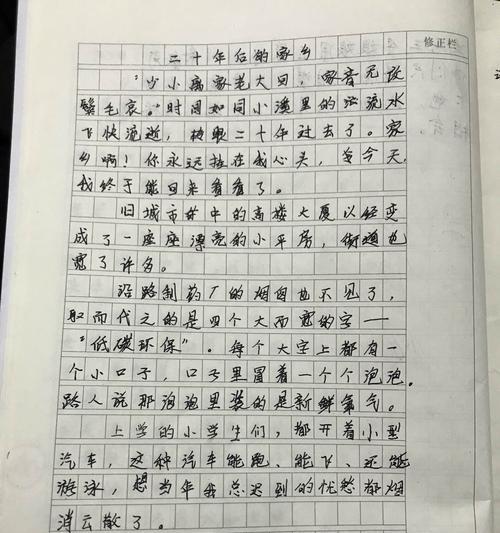 修正栏
二十年后的家乡
“少小离家老大回，家音无改
鬓毛衰。”时间如同小溪里的流水
飞快流逝，转眼二十年过去了。家
乡啊！你永远挂在我心头，今天，
我终于能回来看看了。
旧城市中的高楼大厦以经变
成了一座座漂亮的小平房，街道也
宽了许多。
沿路制药厂的烟囱也不见了，
取而代之的是四个大而宽的字——
“低碳环保”。每个大字上都有一
个小口子，口子里冒着一个个泡泡。
路人说那泡泡里装的是新鲜氧气。
上学的小学生们，都开着小型
汽车，这种汽车能跑、能飞、还能
游泳，想当年我总迟到的忧愁都烟
消云散了。